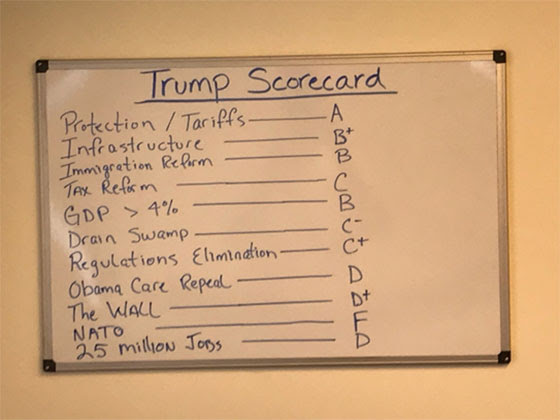 Trump Scorecard
Protection / Tariffs — A
Infrastructure — B+
Immigration Reform — B
Tax Reform — C
GDP > 4% — B
Drain Swamp — C-
Regulations Elimination — C+
Obama Care Repeal — D
The WALL — D+
NATO — F
25 million Jobs — D